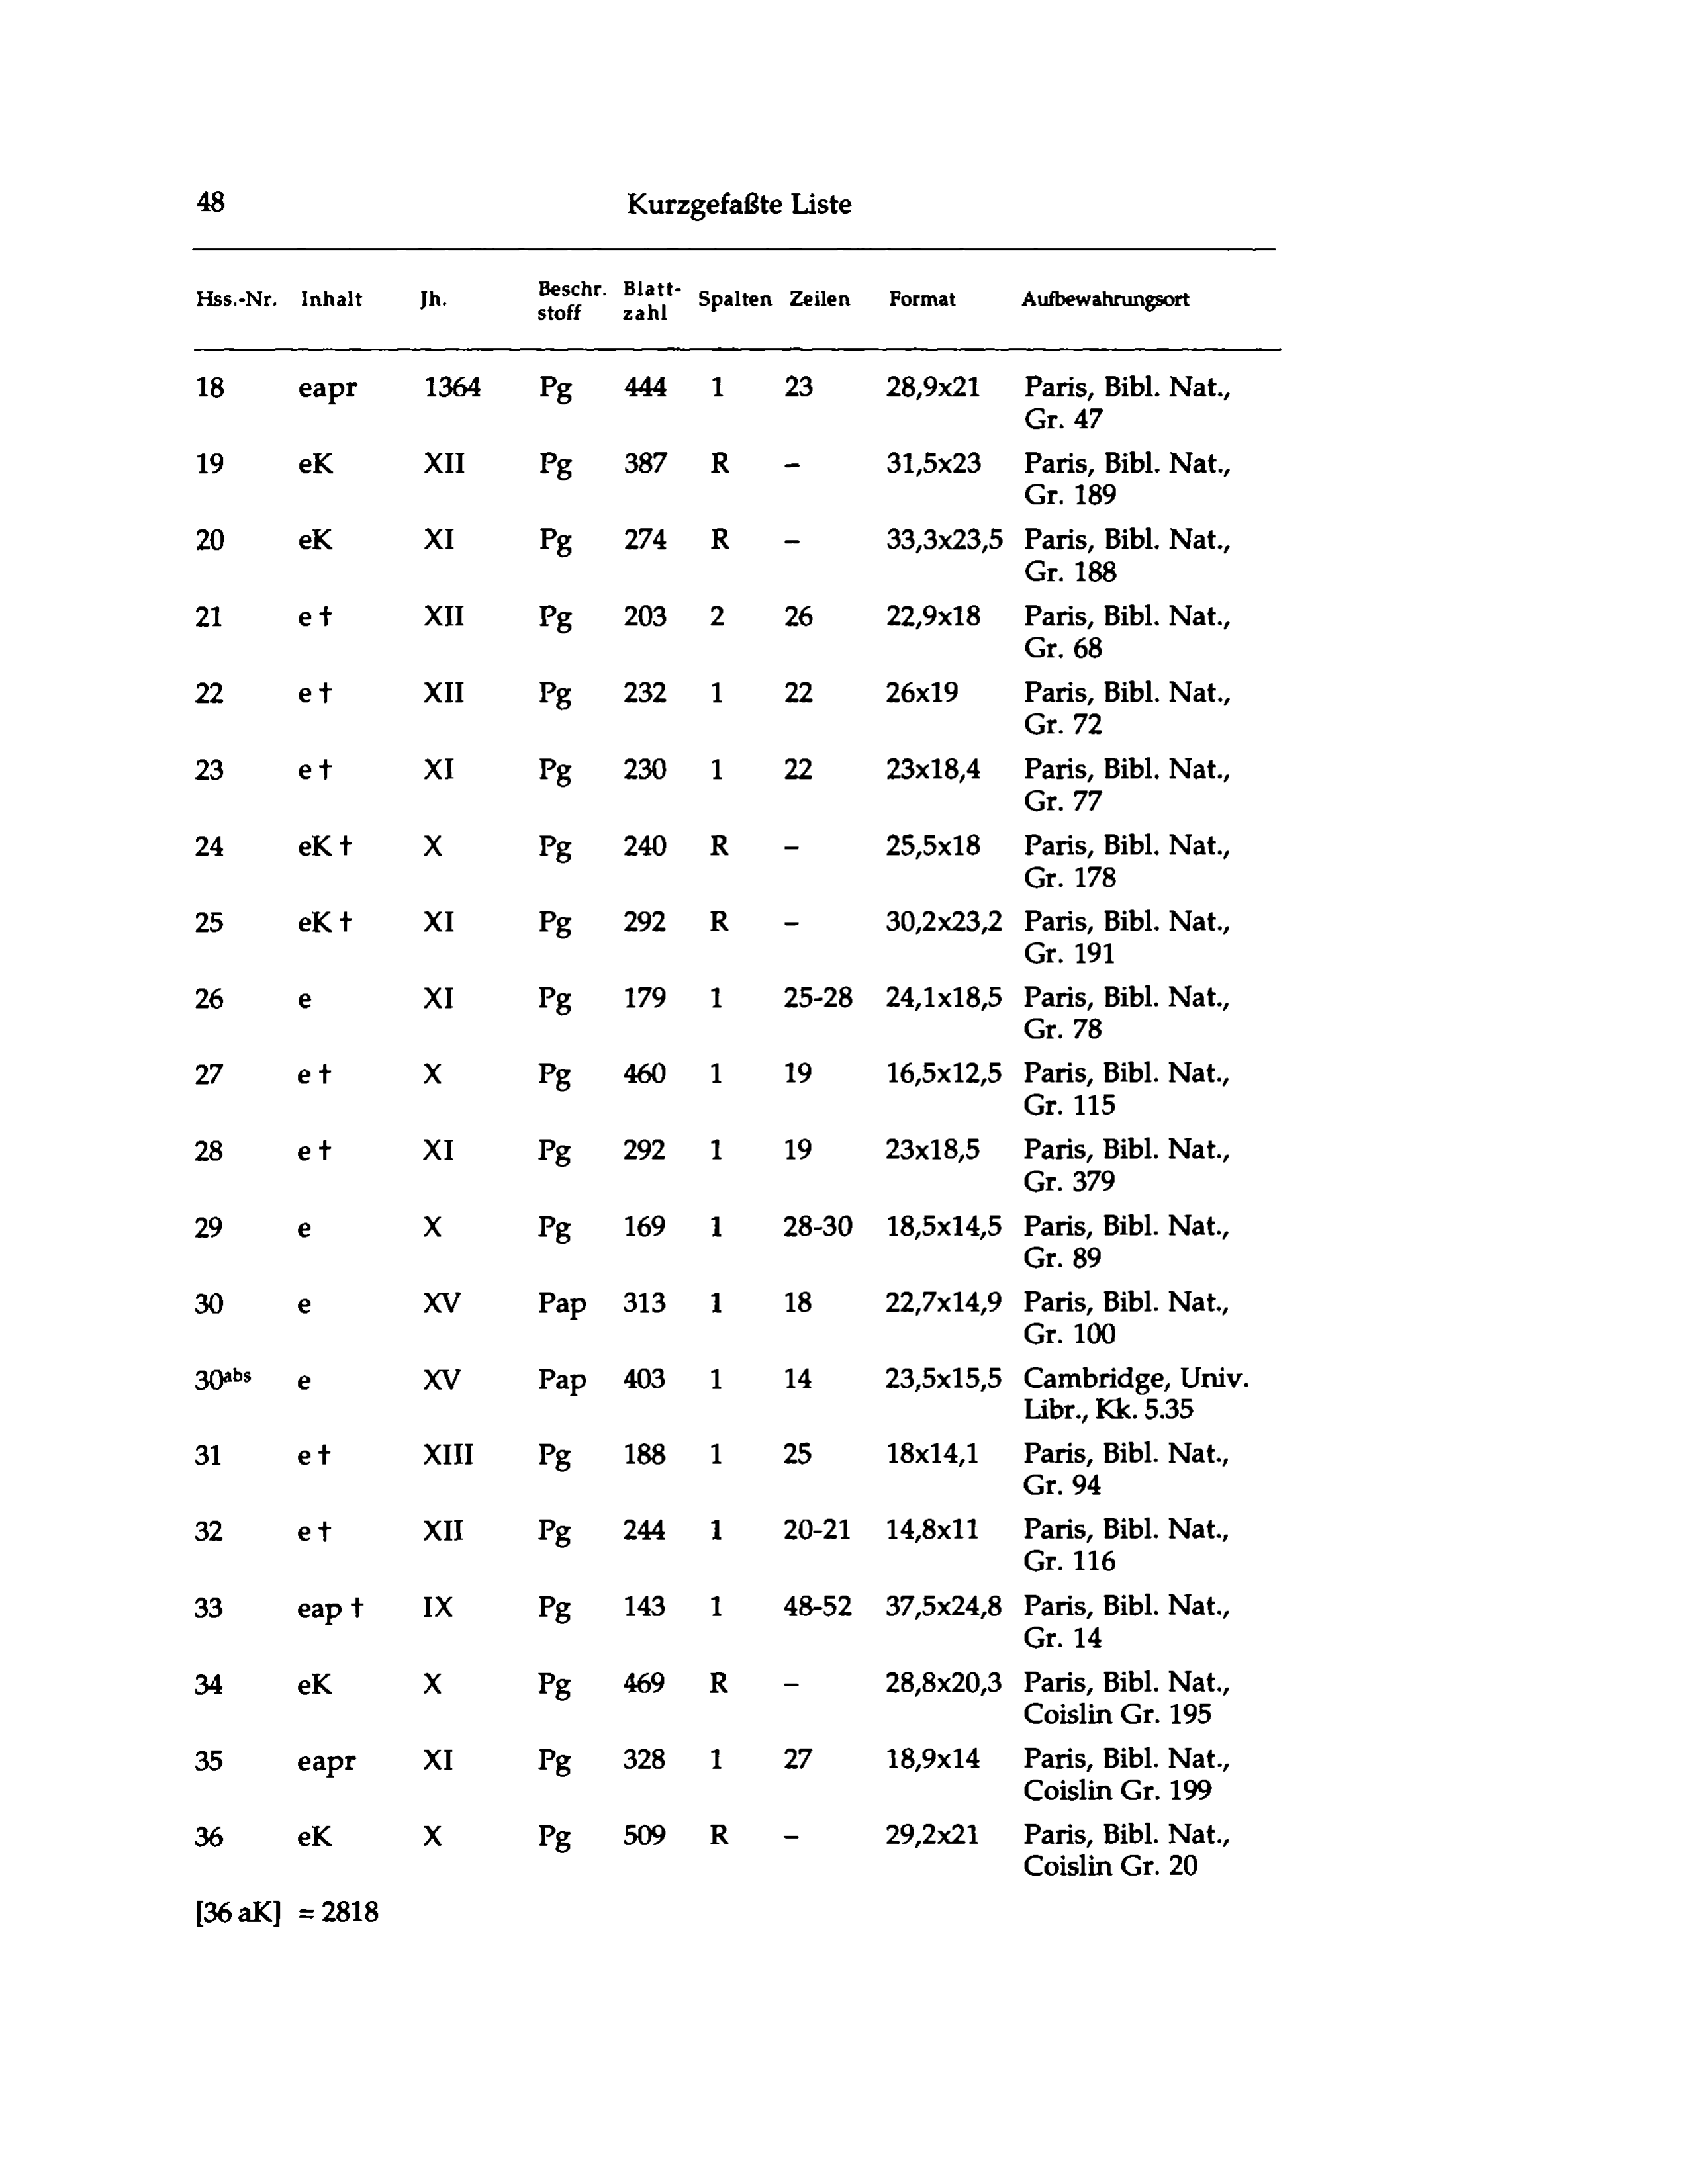 48 Kurzgefaßte Liste
Hss.-Nr. Inhalt Jh. Beschr. stoff Blatt- zahl Spalten Zeilen Format Aufbewahrungsort
18 eapr 1364 Pg 444 1 23 28,9x21 Paris, Bibl. Nat.,
Gr. 47
19 eK XII Pg 387 R – 31,5x23 Paris, Bibl. Nat.,
Gr. 189
20 eK XI Pg 274 R – 33,3x23,5 Paris, Bibl. Nat.,
Gr. 188
21 e † XII Pg 203 2 26 22,9x18 Paris, Bibl. Nat.,
Gr. 68
22 e † XII Pg 232 1 22 26x19 Paris, Bibl. Nat.,
Gr. 72
23 e † XI Pg 230 1 22 23x18,4 Paris, Bibl. Nat.,
Gr. 77
24 eK † X Pg 240 R – 25,5x18 Paris, Bibl. Nat.,
Gr. 178
25 eK † XI Pg 292 R – 30,2x23,2 Paris, Bibl. Nat.,
Gr. 191
26 e XI Pg 179 1 25-28 24,1x18,5 Paris, Bibl. Nat.,
Gr. 78
27 e † X Pg 460 1 19 16,5x12,5 Paris, Bibl. Nat.,
Gr. 115
28 e † XI Pg 292 1 19 23x18,5 Paris, Bibl. Nat.,
Gr. 379
29 e X Pg 169 1 28-30 18,5x14,5 Paris, Bibl. Nat.,
Gr. 89
30 e XV Pap 313 1 18 22,7x14,9 Paris, Bibl. Nat.,
Gr. 100
30abs e XV Pap 403 1 14 23,5x15,5 Cambridge, Univ.
Libr., Kk. 5.35
31 e † XIII Pg 188 1 25 18x14,1 Paris, Bibl. Nat.,
Gr. 94
32 e † XII Pg 244 1 20-21 14,8x11 Paris, Bibl. Nat.,
Gr. 116
33 eap † IX Pg 143 1 48-52 37,5x24,8 Paris, Bibl. Nat.,
Gr. 14
34 eK X Pg 469 R – 28,8x20,3 Paris, Bibl. Nat.,
Coislin Gr. 195
35 eapr XI Pg 328 1 27 18,9x14 Paris, Bibl. Nat.,
Coislin Gr. 199
36 eK X Pg 509 R – 29,2x21 Paris, Bibl. Nat.,
Coislin Gr. 20
[36 aK] = 2818